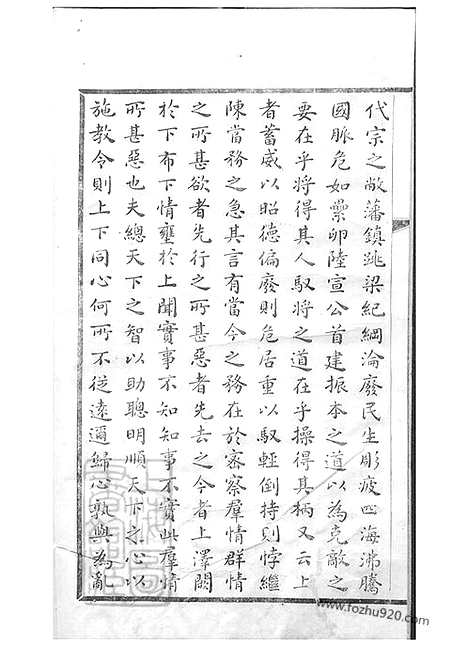 代宗之敝藩鎮跳梁紀綱淪廢民生彫疲四海沸騰
國脈危如纍卵陸宣公首建振本之道以為克敵之
要在乎將得其人馭將之道在乎操得其柄又云上
者蓄威以昭德偏廢則危居重以馭輕倒持則悖繼
陳當務之急其言有當今之務在於審察羣情群情
之所甚欲者先行之所甚惡者先去之今者上澤闕
於下布下情壅於上聞實事不知知事不實此羣情
所甚惡也夫總天下之智以助聰明順天下之心以
施教令則上下同心何所不從遠邇歸心孰與為亂
www.fozhu920.com